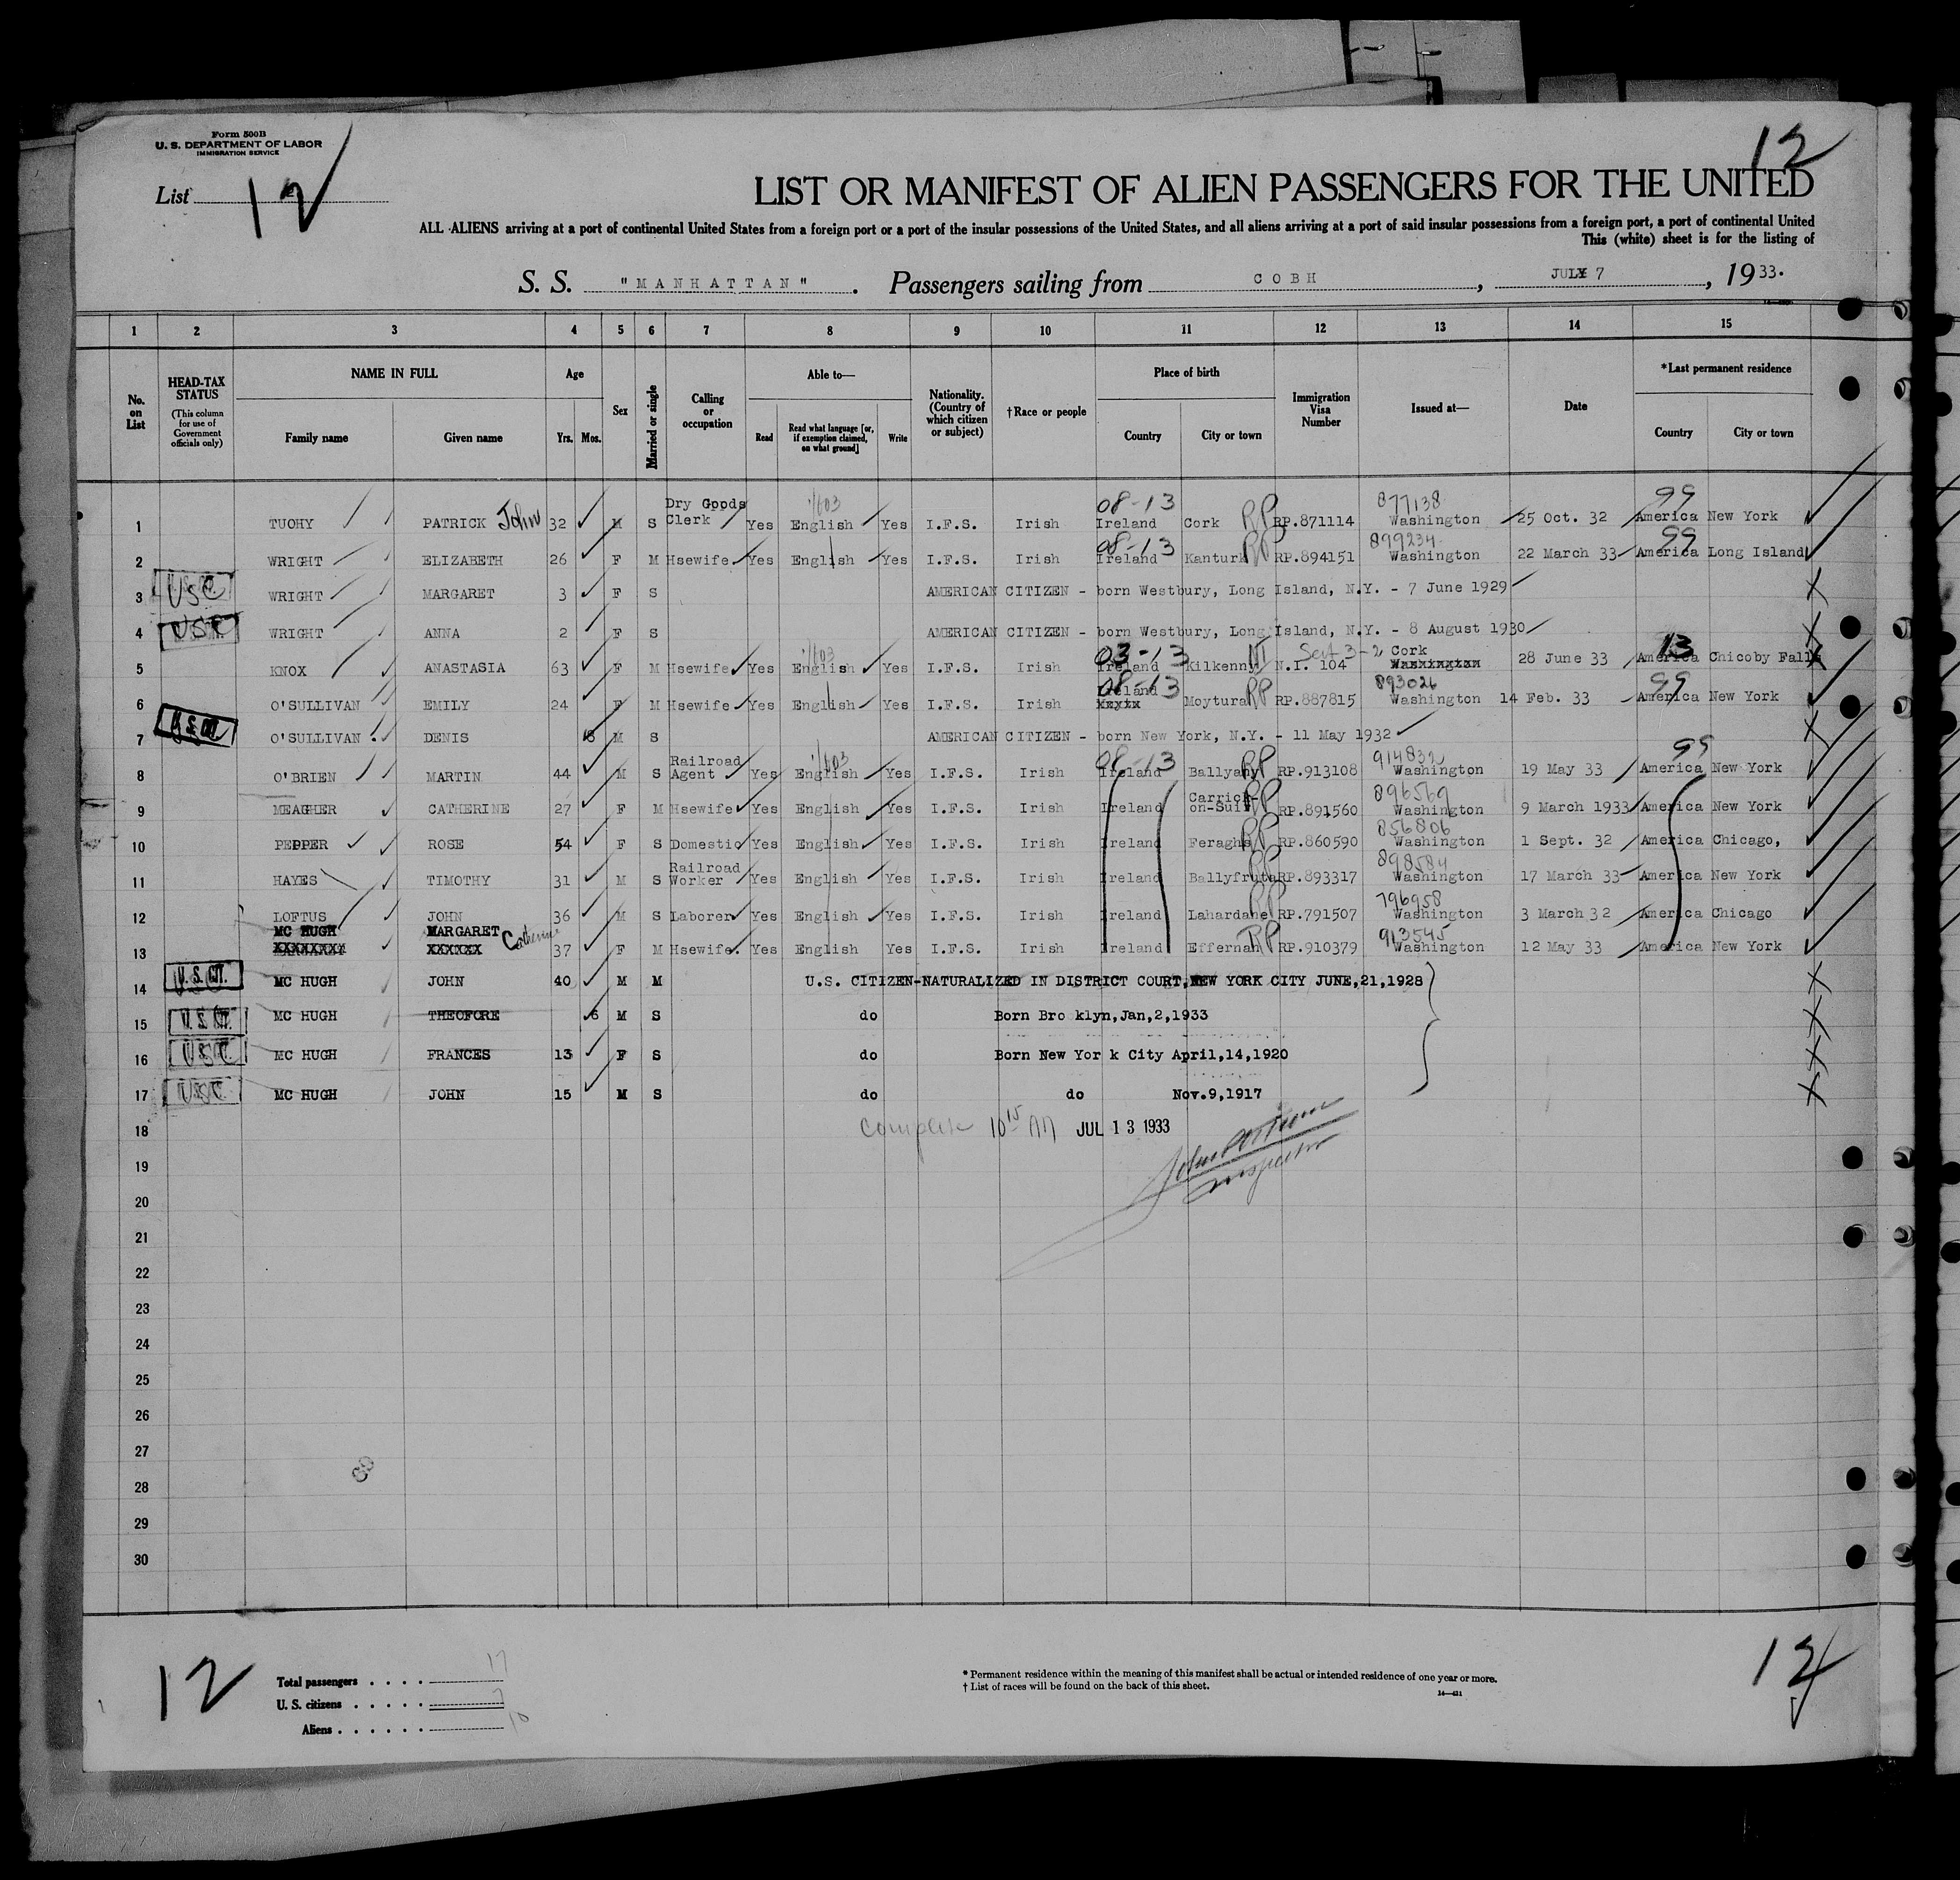 Form 500B
U. S. DEPARTMENT OF LABOR
IMMIGRATION SERVICE
List 12
12
LIST OR MANIFEST OF ALIEN PASSENGERS FOR THE UNITED
ALL ALIENS arriving at a port of continental United States from a foreign port or a port of the insular possessions of the United States, and all aliens arriving at a port of said insular possessions from a foreign port, a port of continental United
This (white) sheet is for the listing of
S. S. "MANHATTAN" . Passengers sailing from COBH , JULY 7 , 1933.
1 2 3 4 5 6 7 8 9 10 11 12 13 14 15
No. on List
HEAD-TAX STATUS (This column for use of Government officials only)
NAME IN FULL
Family name Given name
Age
Yrs. Mos.
Sex
Married or single
Calling or occupation
Able to—
Read Read what language [or, if exemption claimed, on what ground] Write
Nationality. (Country of which citizen or subject)
†Race or people
Place of birth
Country City or town
Immigration Visa Number
Issued at—
Date
*Last permanent residence
Country City or town
1 TUOHY PATRICK John 32 M S Dry Goods Clerk Yes English Yes I.F.S. Irish 08-13 Ireland Cork RP RP.871114 877138 Washington 25 Oct. 32 99 America New York
2 WRIGHT ELIZABETH 26 F M Hsewife Yes English Yes I.F.S. Irish 08-13 Ireland Kanturk RP RP.894151 899234 Washington 22 March 33 99 America Long Island
3 USC WRIGHT MARGARET 3 F S AMERICAN CITIZEN - born Westbury, Long Island, N.Y. - 7 June 1929
4 USC WRIGHT ANNA 2 F S AMERICAN CITIZEN - born Westbury, Long Island, N.Y. - 8 August 1930
5 KNOX ANASTASIA 63 F M Hsewife Yes English Yes I.F.S. Irish 03-13 Ireland Kilkenny NI N.I. 104 Sect 3-2 Cork 28 June 33 13 America Chicoby Falls
6 O'SULLIVAN EMILY 24 F M Hsewife Yes English Yes I.F.S. Irish 08-13 Ireland xxxxx Moytura RP RP.887815 893026 Washington 14 Feb. 33 99 America New York
7 O'SULLIVAN DENIS M S AMERICAN CITIZEN - born New York, N.Y. - 11 May 1932
8 O'BRIEN MARTIN 44 M S Railroad Agent Yes English Yes I.F.S. Irish 08-13 Ireland Ballyahy RP RP.913108 914832 Washington 19 May 33 99 America New York
9 MEAGHER CATHERINE 27 F M Hsewife Yes English Yes I.F.S. Irish Ireland Carrick-on-Suir RP RP.891560 896569 Washington 9 March 1933 America New York
10 PEPPER ROSE 54 F S Domestic Yes English Yes I.F.S. Irish Ireland Feraghs RP RP.860590 856806 Washington 1 Sept. 32 America Chicago,
11 HAYES TIMOTHY 31 M S Railroad Worker Yes English Yes I.F.S. Irish Ireland RP RP.893317 898584 Washington 17 March 33 America New York
12 LOFTUS JOHN 36 M S Laborer Yes English Yes I.F.S. Irish Ireland Lahardane RP RP.791507 796958 Washington 3 March 32 America Chicago
13 MC HUGH MARGARET Catherine 37 F M Hsewife. Yes English Yes I.F.S. Irish Ireland Effernan RP RP.910379 913545 Washington 12 May 33 America New York
14 U.S. CIT. MC HUGH JOHN 40 M M U.S. CITIZEN-NATURALIZED IN DISTRICT COURT,NEW YORK CITY JUNE,21,1928
15 U.S. CIT. MC HUGH THEOFORE 6 M S do Born Bro klyn,Jan,2,1933
16 USC MC HUGH FRANCES 13 F S do Born New Yor k City April,14,1920
17 USC MC HUGH JOHN 15 M S do do Nov.9,1917
18 complete 10 15 AM JUL 13 1933
Inspector
19
20
21
22
23
24
25
26
27
28
29
30
12
Total passengers . . . . 17
U. S. citizens . . . . . 7
Aliens . . . . . . 10
* Permanent residence within the meaning of this manifest shall be actual or intended residence of one year or more.
† List of races will be found on the back of this sheet.
12